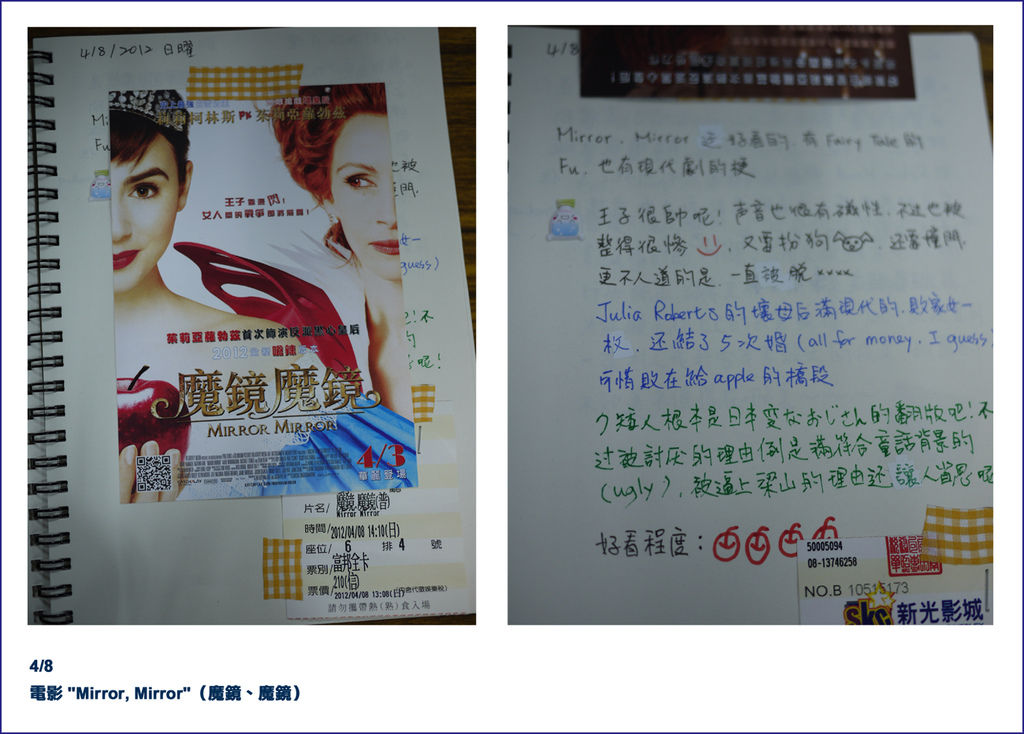 4/8/2012 日曜
莉莉柯林斯 PK 茱莉亞羅勃茲
王子 閃!
女人 戰爭
茱莉亞蘿勃茲首次飾演反派黑心皇后
2012
魔鏡魔鏡
MIRROR MIRROR
4/3
華麗登場
片名/ 魔鏡,魔鏡(普)
Mirror Mirror
時間/ 2012/04/08 14:10(日)
座位/ 6 排 4 號
票別/ 富邦全卡
票價/ 210(信)
2012/04/08 13:08(日)
請勿攜帶熱(熟)食入場
4/8
Mirror, Mirror 還好看的,有 Fairy Tale 的
Fu, 也有現代劇的梗
王子很帥呢! 声音也很有磁性, 不过也被
整得很慘, 又要扮狗, 还要撞門,
更不人道的是, 一直被脫 xxxx
Julia Roberts 的壞母后滿現代的,敗家女一
枚, 还結了5次婚 (all for money, I guess)
可惜敗在給 apple 的橋段
7 矮人根本是日本変なおじさん的翻版吧! 不
过被討厌的理由倒是滿符合童話背景的
(ugly), 被逼上梁山的理由还讓人省思呢
好看程度:
50005094
08-13746258
NO.B 10515173
SKC 新光影城
4/8
電影 "Mirror, Mirror"（魔鏡、魔鏡）